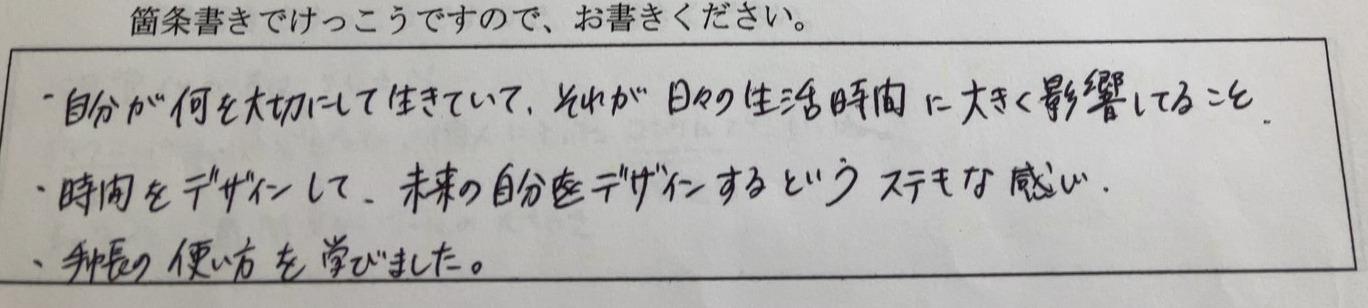 箇条書きでけっこうですので、お書きください。
・自分が何を大切にして生きていて、それが日々の生活時間に大きく影響してること.
・時間をデザインして、未来の自分をデザインするというステキな感じ.
・手帳の使い方を学びました。